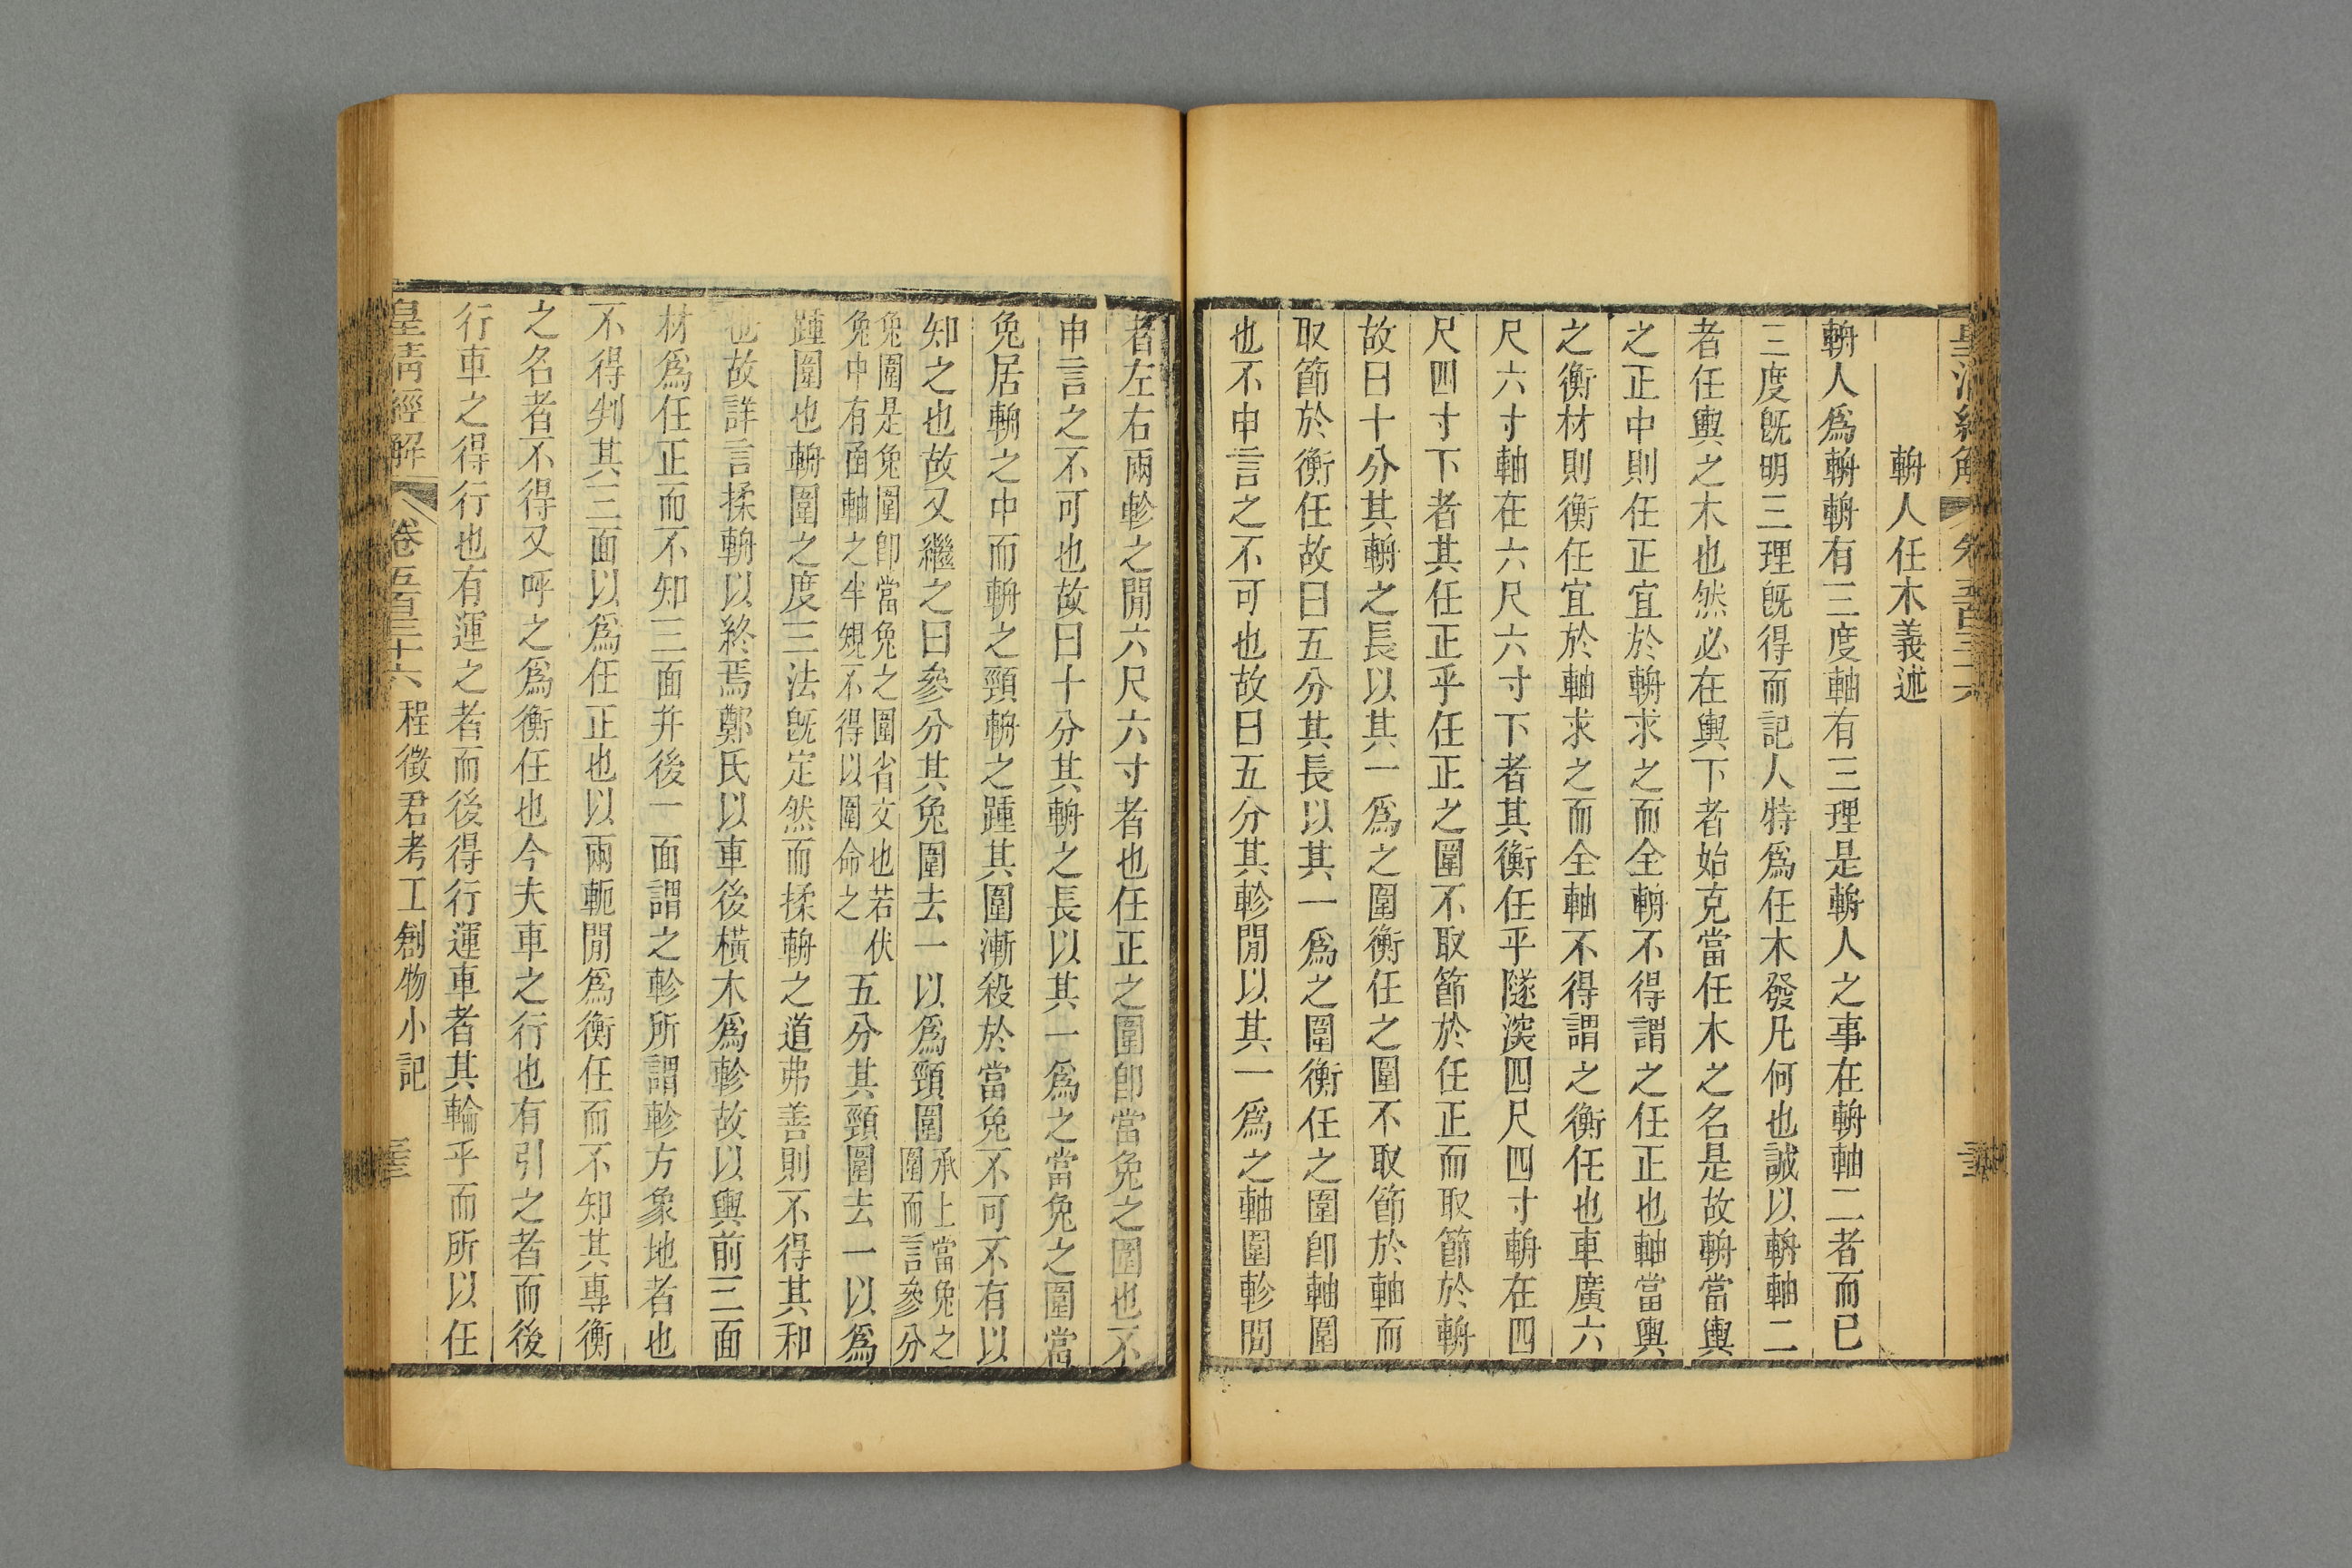 輈人任木義述
輈人爲輈輈有三度軸有三理是輈人之事在輈軸二者而已
三度旣明三理旣得而記人特爲任木發凡何也誠以輈軸二
者任輿之木也然必在輿下者始克當任木之名是故輈當輿
之正中則任正宜於輈求之而全輈不得謂之任正也軸當輿
之衡材則衡任宜於軸求之而全軸不得謂之衡任也車廣六
尺六寸軸在六尺六寸下者其衡任乎隧深四尺四寸輈在四
尺四寸下者其任正乎任正之圍不取節於任正而取節於輈
故曰十分其輈之長以其一爲之圍衡任之圍不取節於軸而
取節於衡任故曰五分其長以其一爲之圍衡任之圍卽軸圍
也不申言之不可也故曰五分其軫閒以其一爲之軸圍軫閒
者左右兩軫之閒六尺六寸者也任正之圍卽當兔之圍也不
申言之不可也故曰十分其輈之長以其一爲之當兔之圍當
兔居輈之中而輈之頸輈之踵其圍漸殺於當兔不可不有以
知之也故又繼之曰參分其兔圍去一以爲頸圍承上當兔之圍而言參分
兔圍是兔圍卽當兔之圍省文也若伏兔中有函軸之半規不得以圍命之五分其頸圍去一以爲
踵圍也輈圍之度三法旣定然而揉輈之道弗善則不得其和
也故詳言揉輈以終焉鄭氏以車後橫木爲軫故以輿前三面
材爲任正而不知三面幷後一面謂之軫所謂軫方象地者也
不得判其三面以爲任正也以兩軛閒爲衡任而不知其專衡
之名者不得又呼之爲衡任也今夫車之行也有引之者而後
行車之得行也有運之者而後得行運車者其輪乎而所以任
皇淸經解 卷五百三十六 程徵君考工創物小記